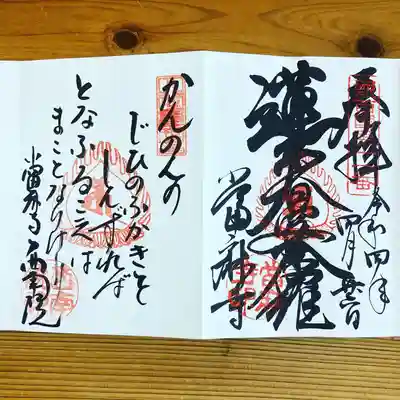 奉拝
令和四年
四月
曼荼羅
當麻寺
かんのんの
じひのふかきを
しんずれば
となふるこえは
まことなりけり
當麻寺 西南院